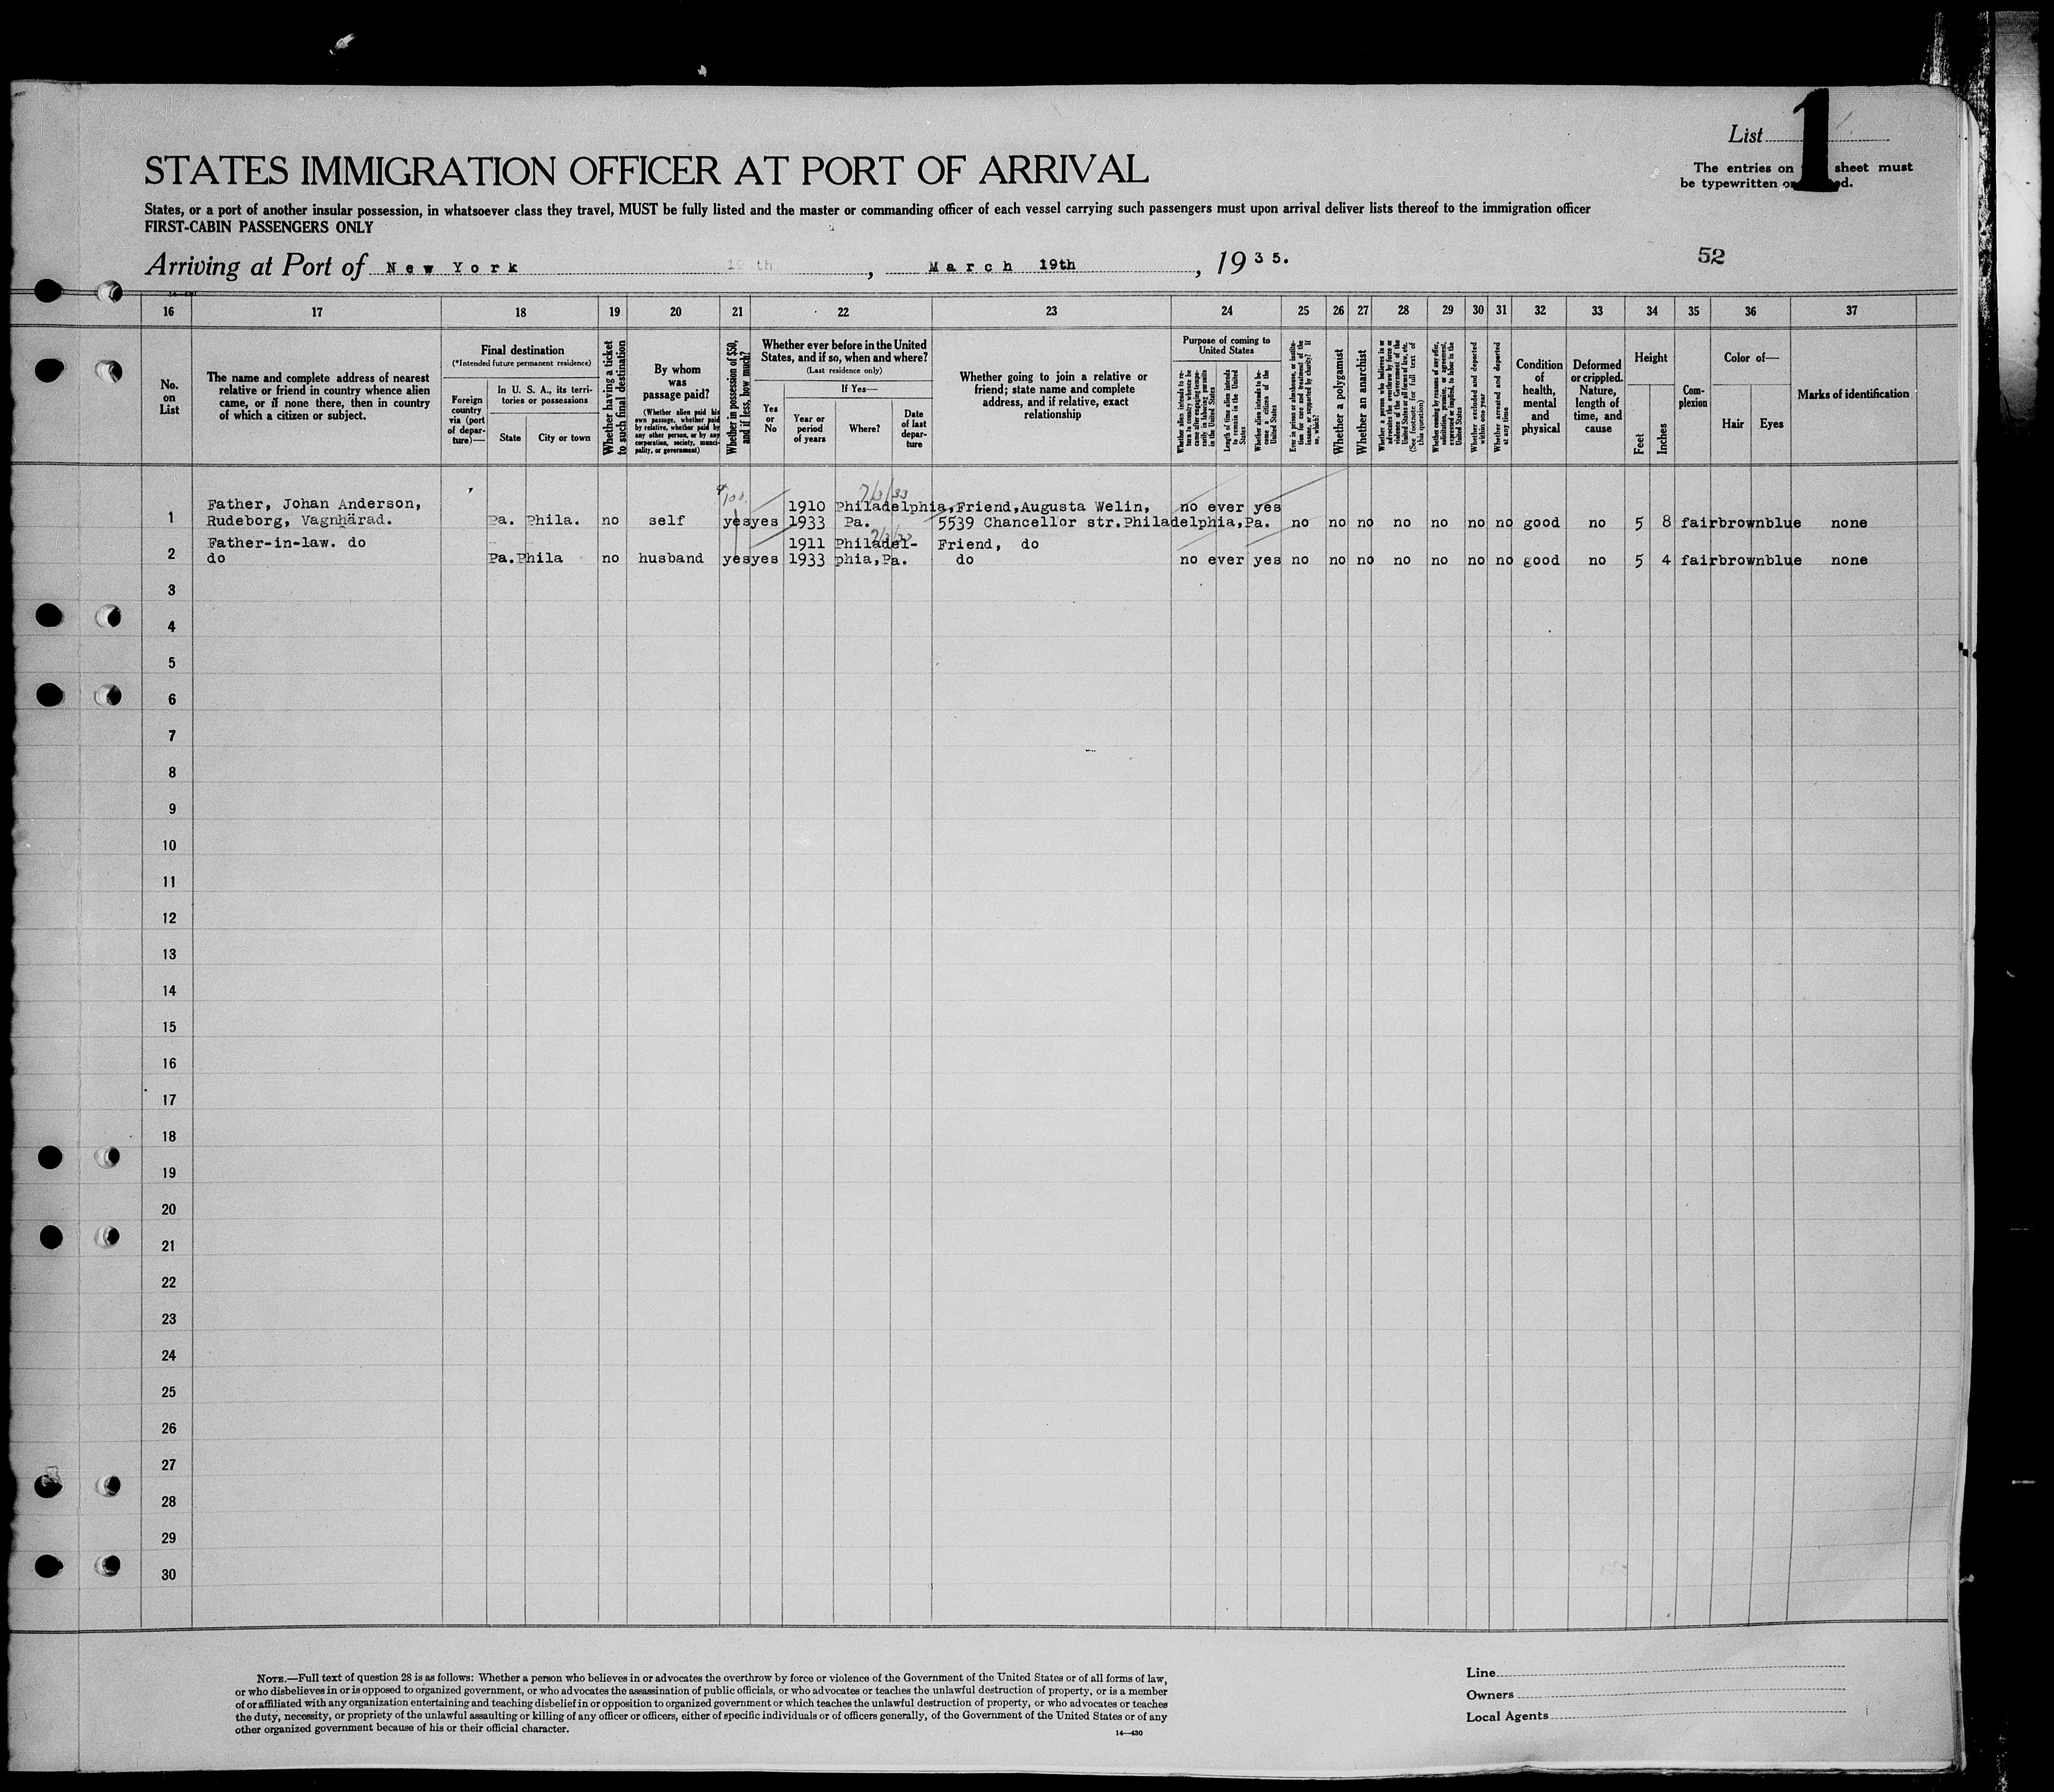 List 1
STATES IMMIGRATION OFFICER AT PORT OF ARRIVAL
The entries on sheet must
be typewritten or
States, or a port of another insular possession, in whatsoever class they travel, MUST be fully listed and the master or commanding officer of each vessel carrying such passengers must upon arrival deliver lists thereof to the immigration officer
FIRST-CABIN PASSENGERS ONLY
Arriving at Port of New York 19 th, March 19th, 1935.
52
16 17 18 19 20 21 22 23 24 25 26 27 28 29 30 31 32 33 34 35 36 37
No. on List
The name and complete address of nearest relative or friend in country whence alien came, or if none there, then in country of which a citizen or subject.
Final destination
(*Intended future permanent residence)
Foreign country via (port of departure)—
In U. S. A., its territories or possessions
State
City or town
Whether having a ticket to such final destination
By whom was passage paid?
(Whether alien paid his own passage, whether paid by relative, whether paid by any other person, or by any corporation, society, municipality, or government)
Whether in possession of $50, and if less, how much?
Whether ever before in the United States, and if so, when and where?
(Last residence only)
If Yes—
Yes or No
Year or period of years
Where?
Date of last departure
Whether going to join a relative or friend; state name and complete address, and if relative, exact relationship
Purpose of coming to United States
Length of time alien intends to remain in the United States
Whether alien intends to become a citizen of the United States
Whether a polygamist
Whether an anarchist
Whether excluded and deported within one year
Whether arrested and deported at any time
Condition of health, mental and physical
Deformed or crippled. Nature, length of time, and cause
Height
Feet
Inches
Complexion
Color of—
Hair
Eyes
Marks of identification
7/3/33
100.
Father, Johan Anderson, 1910 Philadelphia, Friend,Augusta Welin, no ever yes
1 Rudeborg, Vagnhärad. Pa. Phila. no self yes yes 1933 Pa. 5539 Chancellor str.Philadelphia,Pa. no no no no no no no good no 5 8 fair brown blue none
Father-in-law. do 1911 Philadel- Friend, do
2 do Pa. Phila no husband yes yes 1933 phia,Pa. do no ever yes no no no no no no no good no 5 4 fair brown blue none
3
4
5
6
7
8
9
10
11
12
13
14
15
16
17
18
19
20
21
22
23
24
25
26
27
28
29
30
NOTE.—Full text of question 28 is as follows: Whether a person who believes in or advocates the overthrow by force or violence of the Government of the United States or of all forms of law,
or who disbelieves in or is opposed to organized government, or who advocates the assassination of public officials, or who advocates or teaches the unlawful destruction of property, or is a member
of or affiliated with any organization entertaining and teaching disbelief in or opposition to organized government or which teaches the unlawful destruction of property, or who advocates or teaches
the duty, necessity, or propriety of the unlawful assaulting or killing of any officer or officers, either of specific individuals or of officers generally, of the Government of the United States or of any
other organized government because of his or their official character.
14—430
Line
Owners
Local Agents